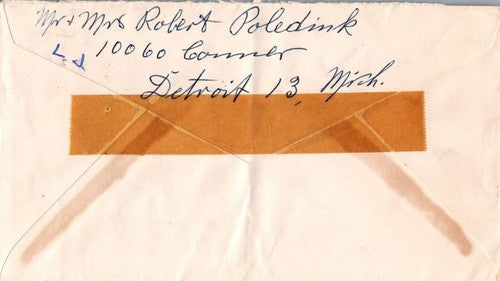 Mr & Mrs Robert Poledink
10060 Conner
Detroit 13, Mich.